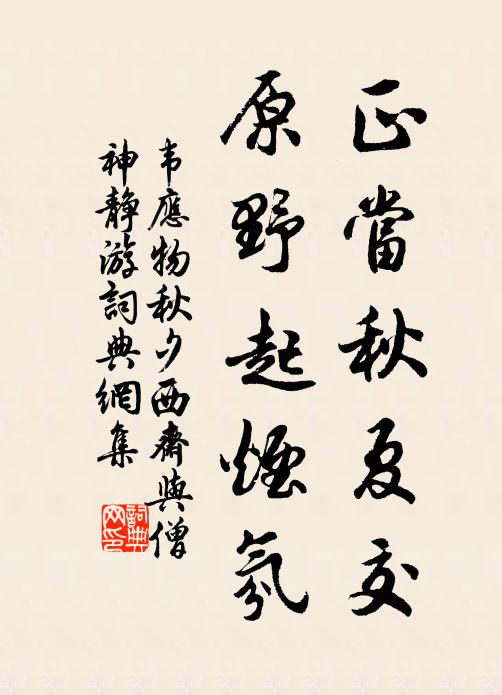 正當秋夏交
原野起煙氛
韦應物秋夕西齋與僧
神靜游詞典網集
詞典
网印